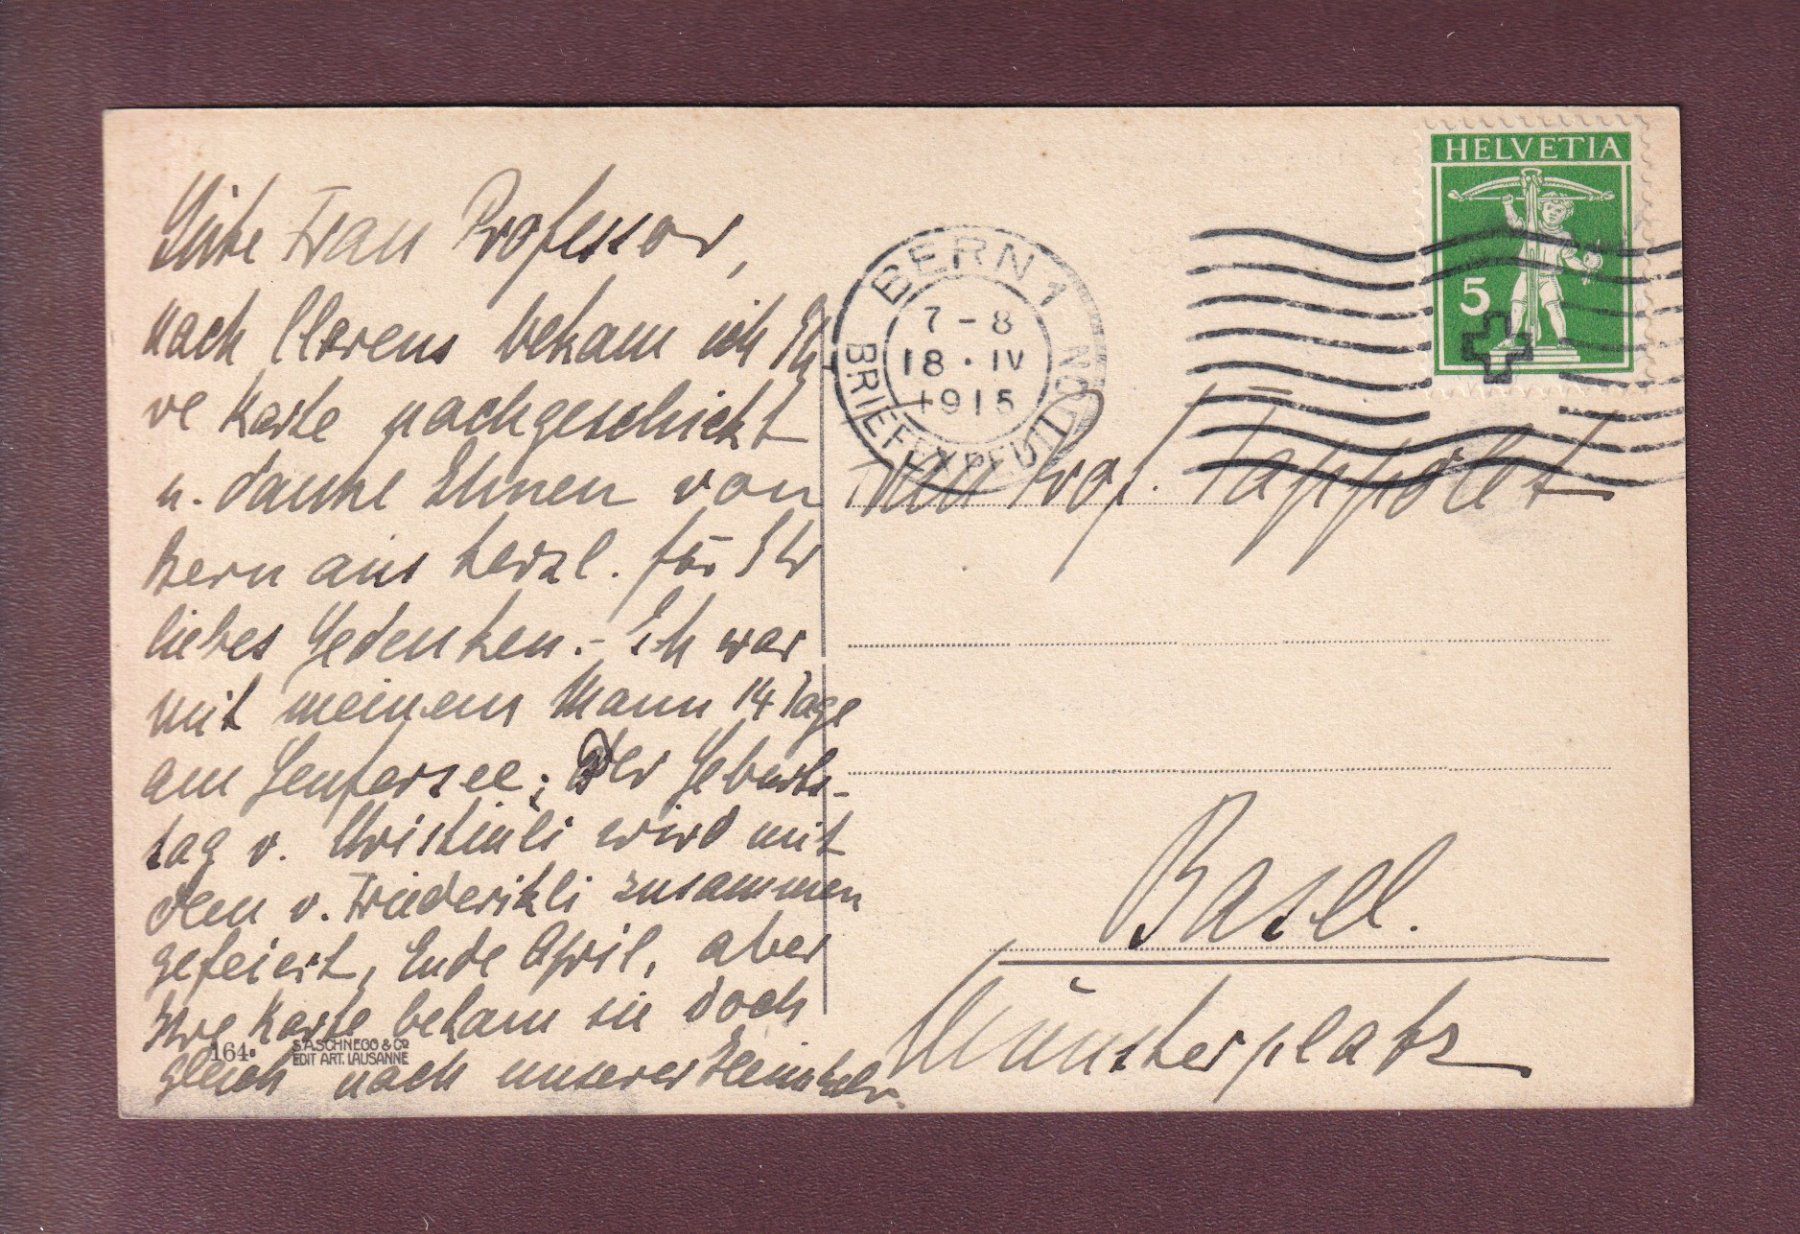 Liebe Frau Professor,
nach Clarens bekam ich Ih
re Karte nachgeschickt
u. danke Ihnen von
Bern aus herzl. für Ihr
liebes Gedenken. - Ich war
mit meinem Mann 14 Tage
am Genfersee; der Geburts-
tag v. Christineli wird mit
dem v. Friederikli zusammen
gefeiert, Ende April, aber
Ihre Karte bekam sie doch
gleich nach unserer Heimkehr.
164.
S.A. SCHNEGG & Co
EDIT ART. LAUSANNE
BERN 1
7-8
18·IV
1915
BRIEFEXPEDITION
HELVETIA
5
Frau Prof. Tappolet
Basel.
Münsterplatz